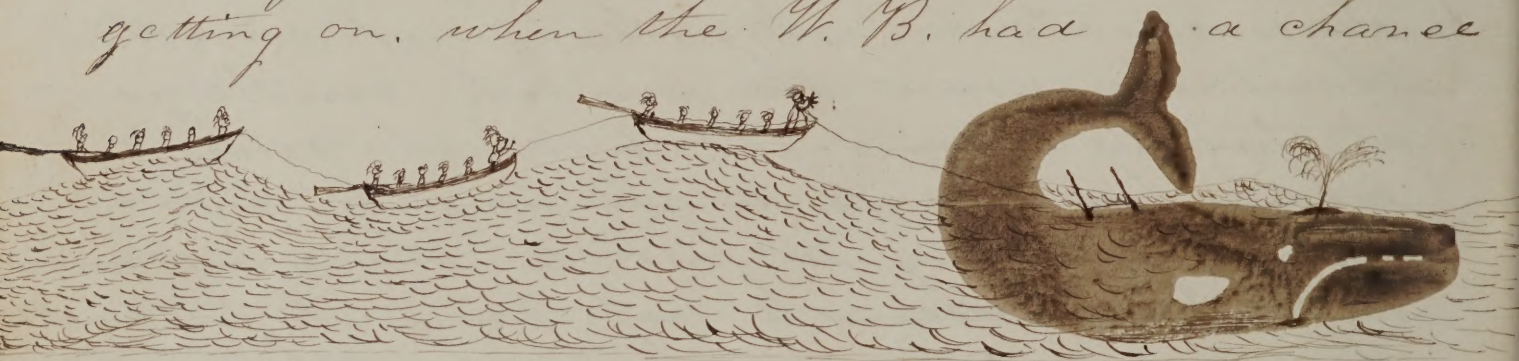 getting on. when the W. B. had a chance